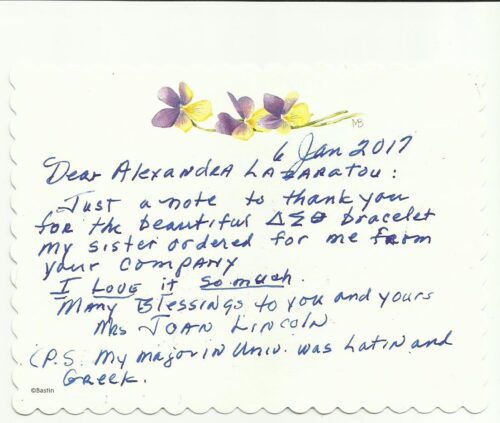 MB
6 Jan 2017
Dear Alexandra Lazaratou:
Just a note to thank you
for the beautiful ΔΣΘ bracelet
my sister ordered for me from
your company
I Love it so much.
Many Blessings to you and yours
Mrs Joan Lincoln
(P.S. My major in Univ. was Latin and
Greek.
©Bastin